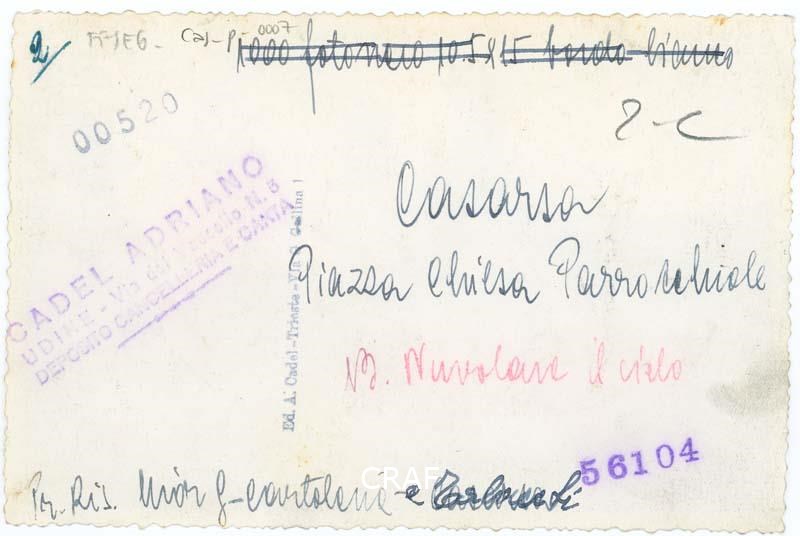 2/ Caj-P-0007
1000 foto nero 10.5x15 bordo bianco
00520
2-C
CADEL ADRIANO
UDINE - Via del Vascello N. 5
DEPOSITO CANCELLERIA E CARTA
Ed. A. Cadel - Trieste - Via S.
Casarsa
Piazza Chiesa Parrochiale
NB. Nuvolare il cielo
56104
Pr. Ris. cartoleria e
CRAF